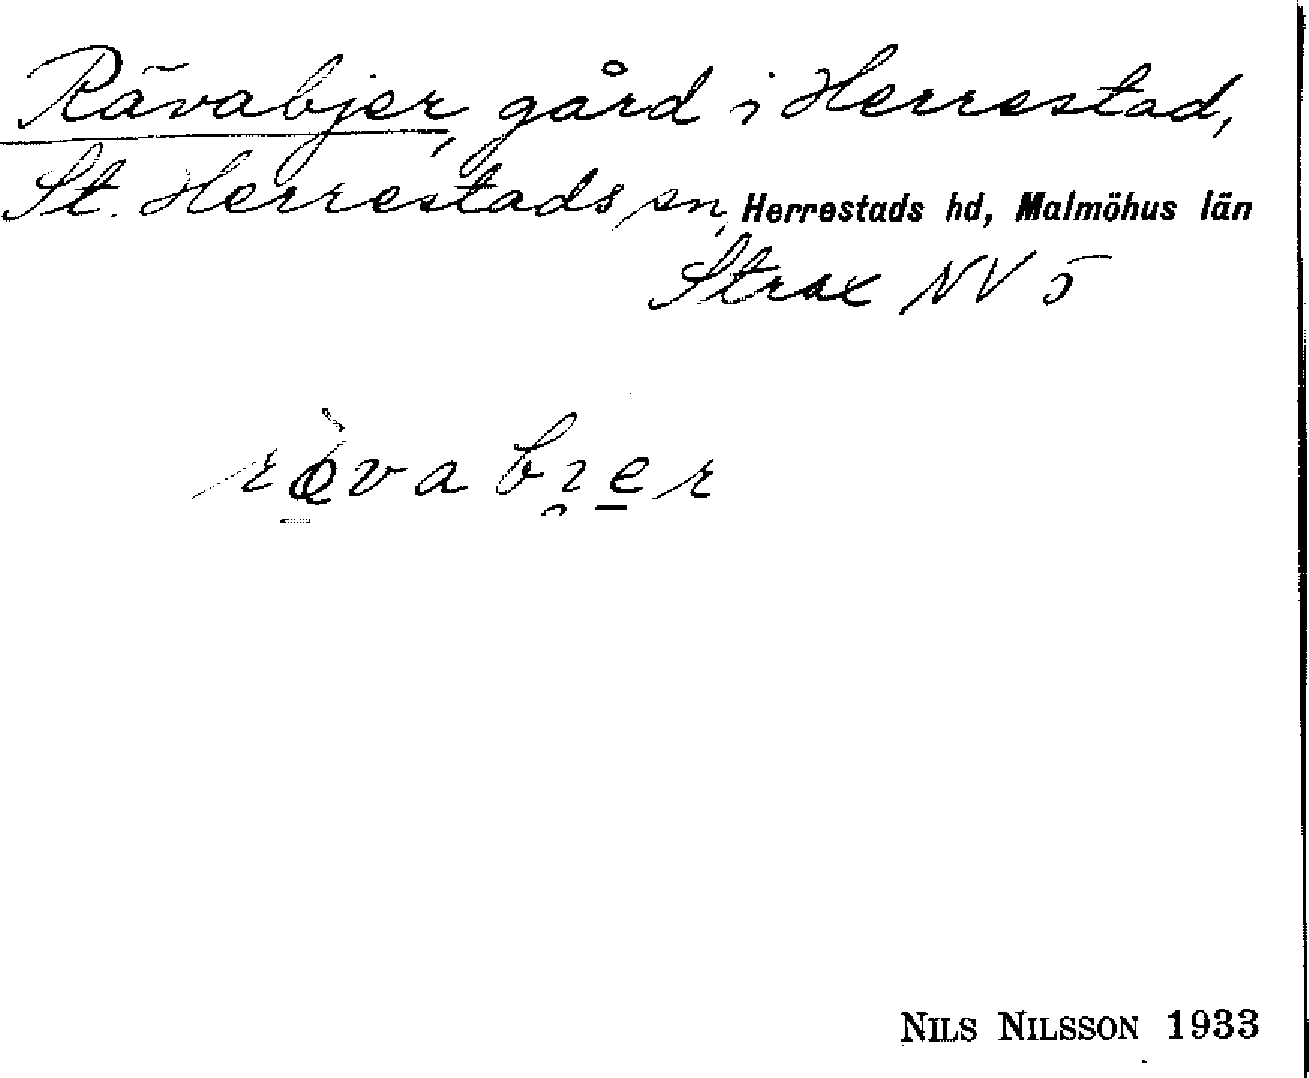 Rävabjer, gård i Herrestad,
St. Herrestads sn, Herrestads hd, Malmöhus län
Strax NV 5
NILS NILSSON 1933